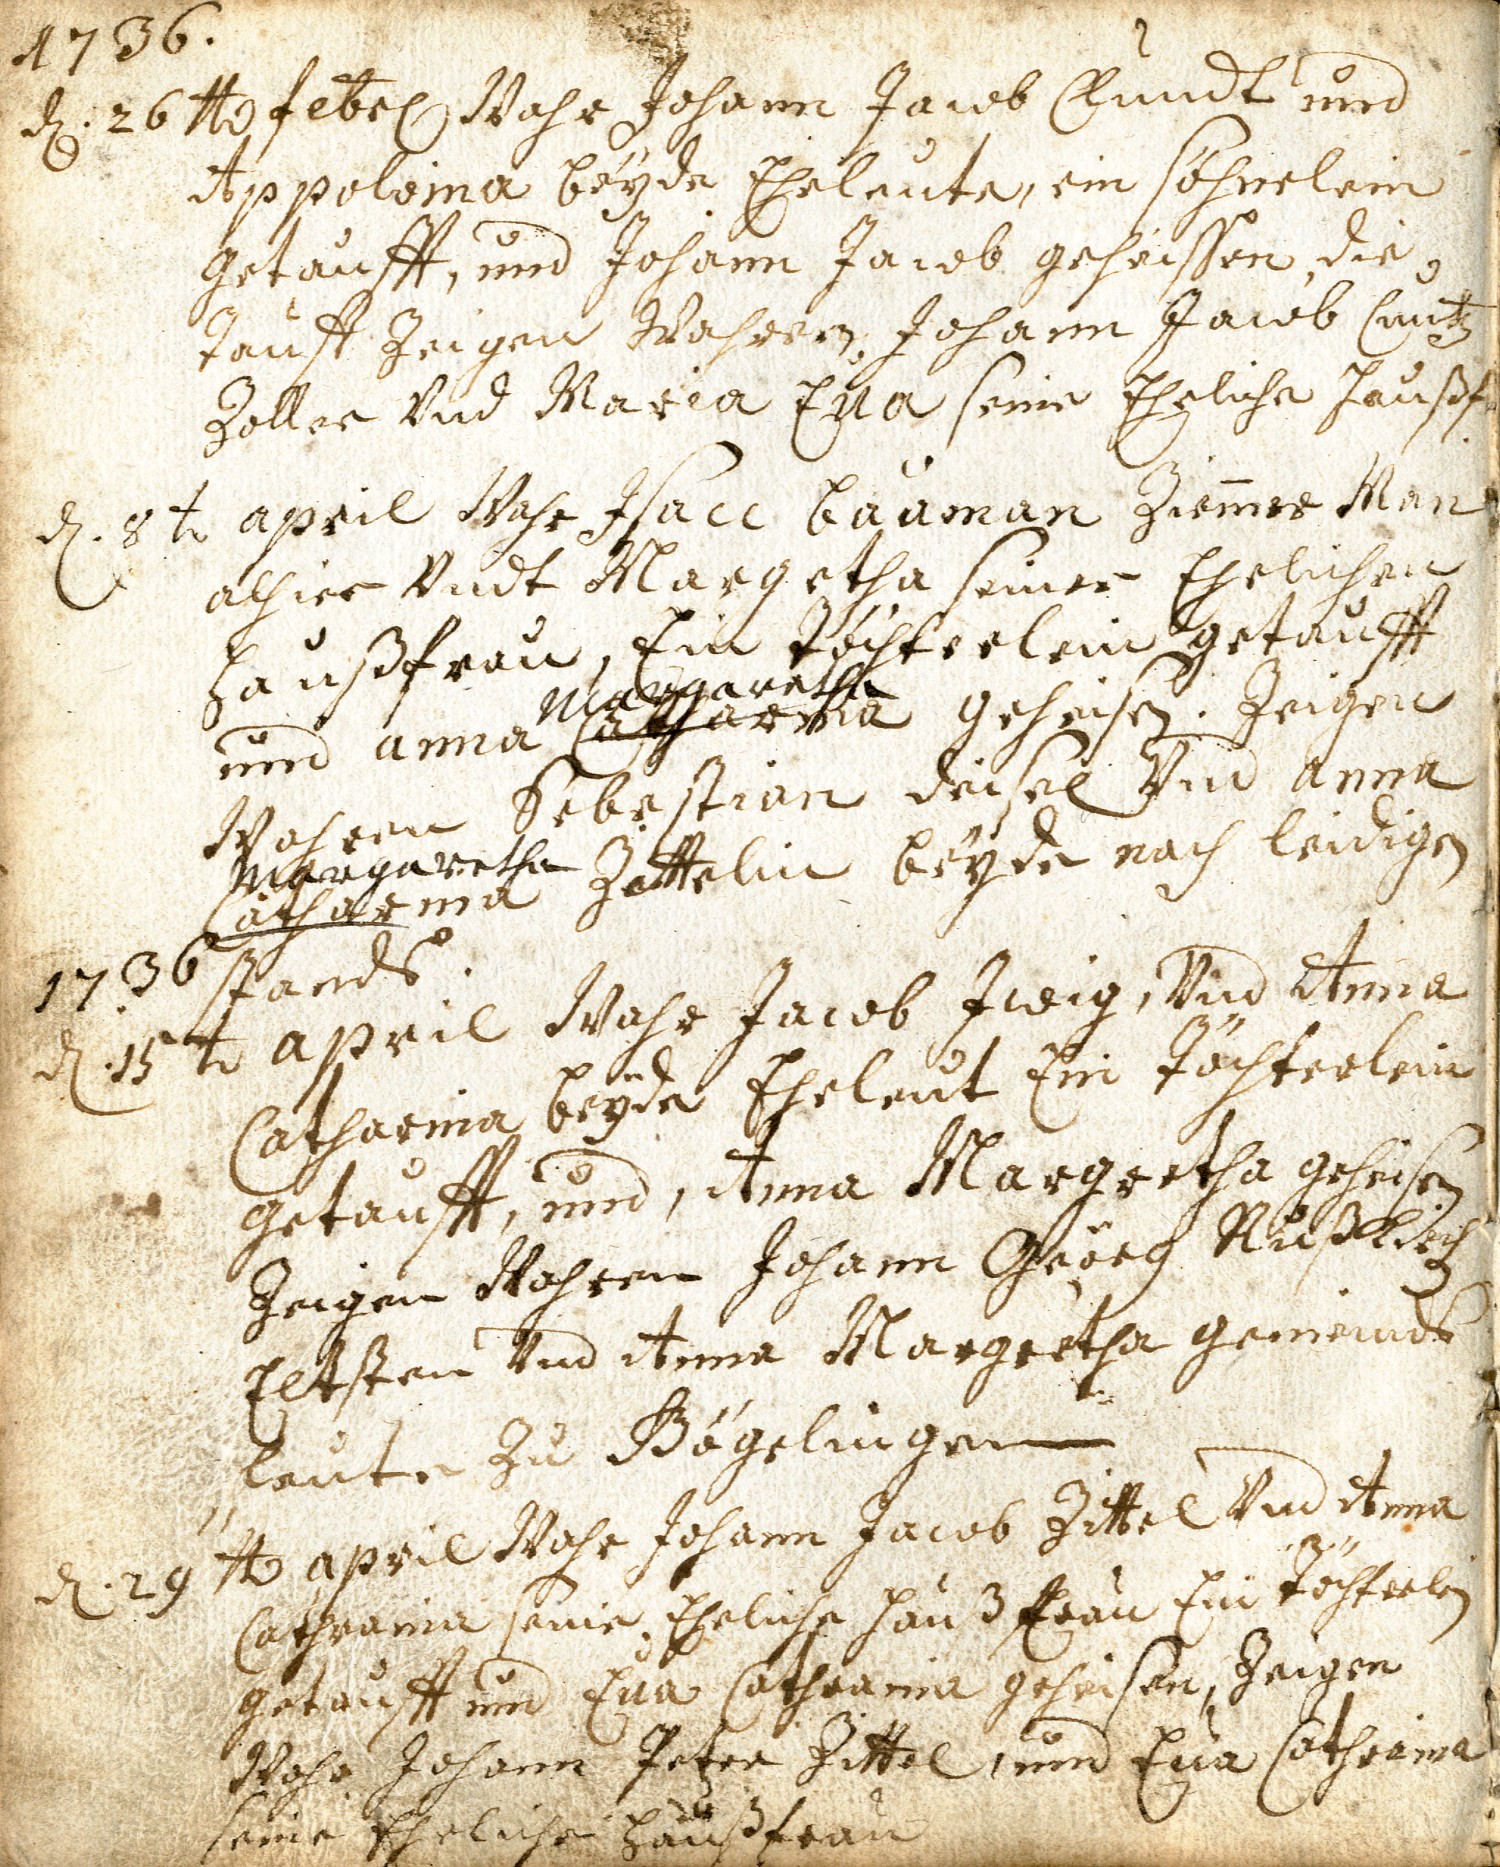 1736.
d. 26 tt febrl Wahr Johann Jacob Kundt und
Appolonia beÿde Eheleute, ein söhnelein
getaufft, und Johann Jacob geheissen, die
Tauff Zeigen Wahren, Johann Jacob Cuntz
Zoller Und Maria Eva seine Eheliche Haußf.
d. 8 t april Wahr Isacc bauman Zim̄er Man
alhier Undt Margetha seiner Ehelichen
haußfrau, Ein töchterlein getaufft
Margaretha
und anna Catharina geheisen. Zeigen
Wahren Sebestian deisel Und anna
Margaretha
Catharina Zittelin beÿde noch leidigen
1736 stands.
d. 15 t april Wahr Jacob Zweig, Und Anna
Catharina beÿde Eheleut Ein töchterlein
getaufft, und, Anna Margretha geheisen
Zeigen Wahren Johann Georg
Eltsten Und Anna Margretha gemeinds
leute Zu Bögelingen
d. 29 tt april Wahr Johann Jacob Zittel Und Anna
Cathrarina seine Eheliche Hauß frau Ein töchterlein
getaufft und Eva Cathrarina geheisen, Zeigen
Wahr Johann Peter Zittel, und Eva Cathrarina
seine Eheliche haußfrau